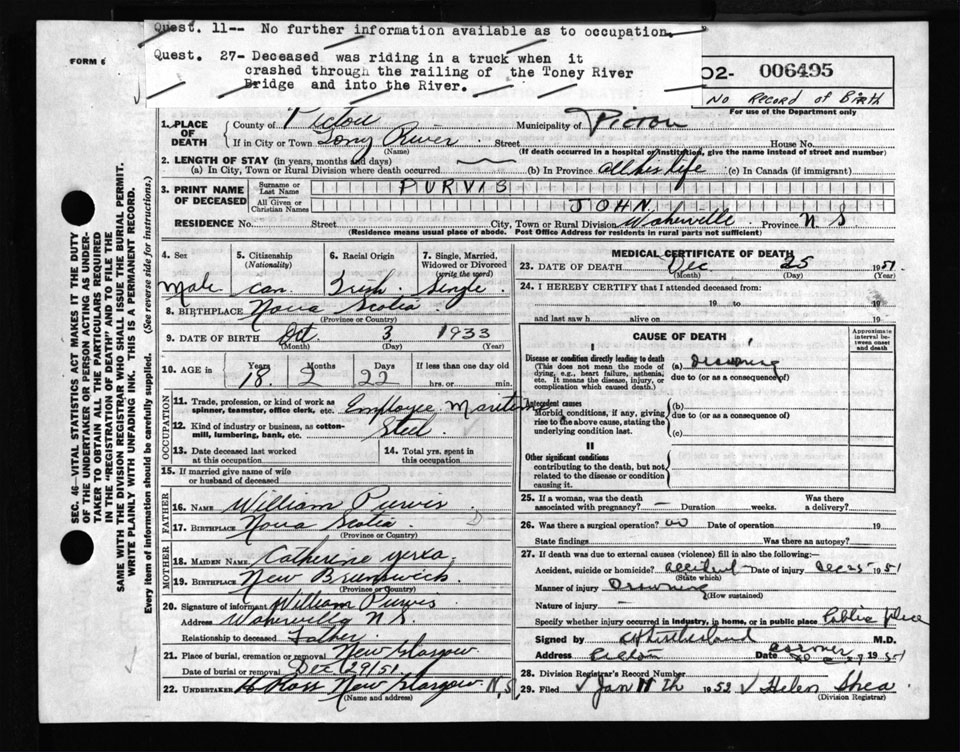 Quest. 11-- No further information available as to occupation.
Quest. 27- Deceased was riding in a truck when it
crashed through the railing of the Toney River
Bridge and into the River.
FORM 6
02- 006495
No Record of Birth
For use of the Department only
1. PLACE OF DEATH
County of Pictou Municipality of Pictou
If in City or Town Tony River Street House No.
(Name) (If death occurred in a hospital or institution, give the name instead of street and number)
2. LENGTH OF STAY (in years, months and days)
(a) In City, Town or Rural Division where death occurred (b) In Province all his life (c) In Canada (if immigrant)
3. PRINT NAME OF DECEASED
Surname or Last Name PURVIS
All Given or Christian Names JOHN
RESIDENCE No. Street City, Town or Rural Division Province N S
(Residence means usual place of abode. Post Office Address for residents in rural parts not sufficient)
4. Sex 5. Citizenship (Nationality) 6. Racial Origin 7. Single, Married, Widowed or Divorced (write the word)
Male Can. Irish Single
8. BIRTHPLACE Nova Scotia
(Province or Country)
9. DATE OF BIRTH Oct. 3 1933
(Month) (Day) (Year)
10. AGE in Years Months Days If less than one day old
18 2 22 hrs. or min.
OCCUPATION
11. Trade, profession, or kind of work as spinner, teamster, office clerk, etc. Employee Maritime
12. Kind of industry or business, as cotton-mill, lumbering, bank, etc. Steel
13. Date deceased last worked at this occupation
14. Total yrs. spent in this occupation
15. If married give name of wife or husband of deceased
FATHER
16. NAME William Purvis
17. BIRTHPLACE Nova Scotia
(Province or Country)
MOTHER
18. MAIDEN NAME Catherine Yerxa
19. BIRTHPLACE New Brunswick
(Province or Country)
20. Signature of informant William Purvis
Address N.S.
Relationship to deceased Father
21. Place of burial, cremation or removal New Glasgow
Date of burial or removal Dec 29/51
22. UNDERTAKER Ross New Glasgow N.S.
(Name and address)
MEDICAL CERTIFICATE OF DEATH
23. DATE OF DEATH Dec 25 1951
(Month) (Day) (Year)
24. I HEREBY CERTIFY that I attended deceased from:
19 to 19
and last saw h alive on 19
CAUSE OF DEATH
Approximate interval between onset and death
I
Disease or condition directly leading to death
(This does not mean the mode of dying, e.g., heart failure, asthenia, etc. It means the disease, injury, or complication which caused death.)
(a) Drowning
due to (or as a consequence of)
Antecedent causes
Morbid conditions, if any, giving rise to the above cause, stating the underlying condition last.
(b)
due to (or as a consequence of)
(c)
II
Other significant conditions
contributing to the death, but not related to the disease or condition causing it.
25. If a woman, was the death associated with pregnancy? Duration weeks. Was there a delivery?
26. Was there a surgical operation? no Date of operation 19
State findings Was there an autopsy?
27. If death was due to external causes (violence) fill in also the following:—
Accident, suicide or homicide? accident Date of injury Dec 25 1951
(State which)
Manner of injury Drowning
(How sustained)
Nature of injury
Specify whether injury occurred in industry, in home, or in public place Public place
Signed by Sutherland M.D.
Coroner
Address Pictou Date 1951
28. Division Registrar's Record Number
29. Filed Jan 11th 1952 Helen Shea
(Division Registrar)
SEC. 46—VITAL STATISTICS ACT MAKES IT THE DUTY
OF THE UNDERTAKER OR PERSON ACTING AS UNDER-
TAKER TO OBTAIN ALL THE PARTICULARS REQUIRED
IN THE "REGISTRATION OF DEATH" AND TO FILE THE
SAME WITH THE DIVISION REGISTRAR WHO SHALL ISSUE THE BURIAL PERMIT.
WRITE PLAINLY WITH UNFADING INK. THIS IS A PERMANENT RECORD.
Every item of information should be carefully supplied. (See reverse side for instructions.)